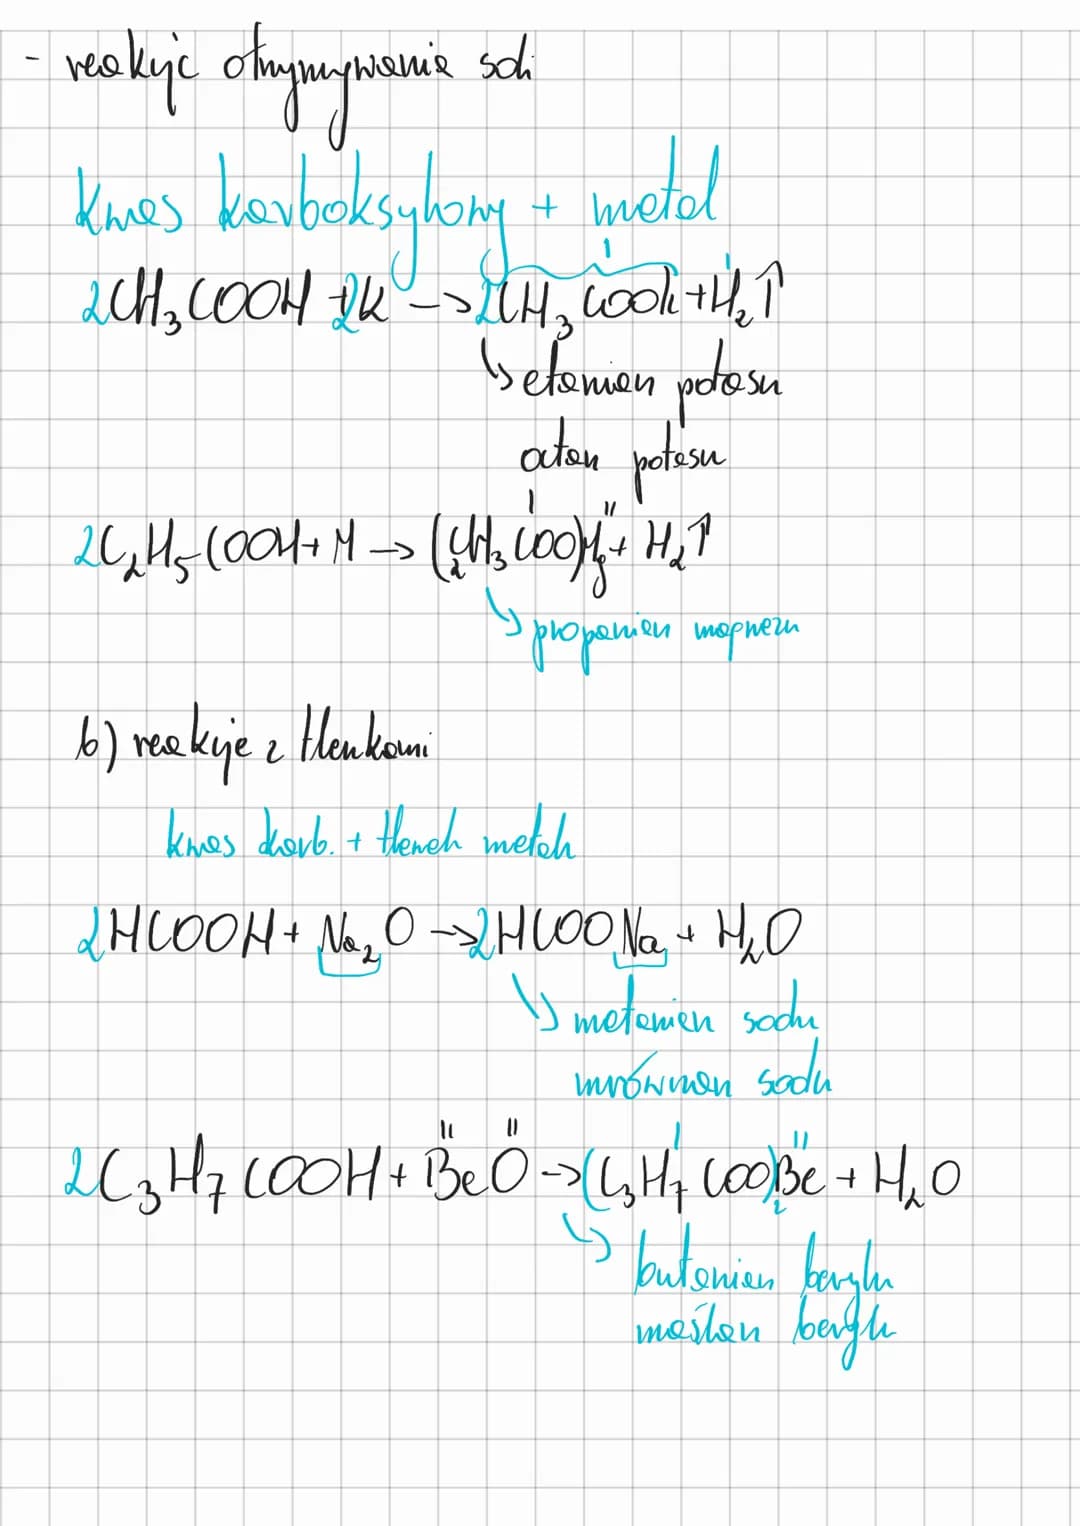 - reakcje otrzymywania soli
Kwas karboksylowy + metal
2CH₃COOH + 2K -> 2CH₃COOK + H₂↑
↳ etanian potasu
octan potasu
2C₂H₅COOH + M -> (CH₃COO)₂Mg + H₂↑
↳ propanian magnezu
b) reakcje z tlenkami
kwas karb. + tlenek metalu
2HCOOH + Na₂O -> 2HCOONa + H₂O
↳ metanian sodu
mrówczan sodu
2C₃H₇COOH + BeO -> (C₃H₇COO)₂Be + H₂O
↳ butanian berylu
maślan berylu